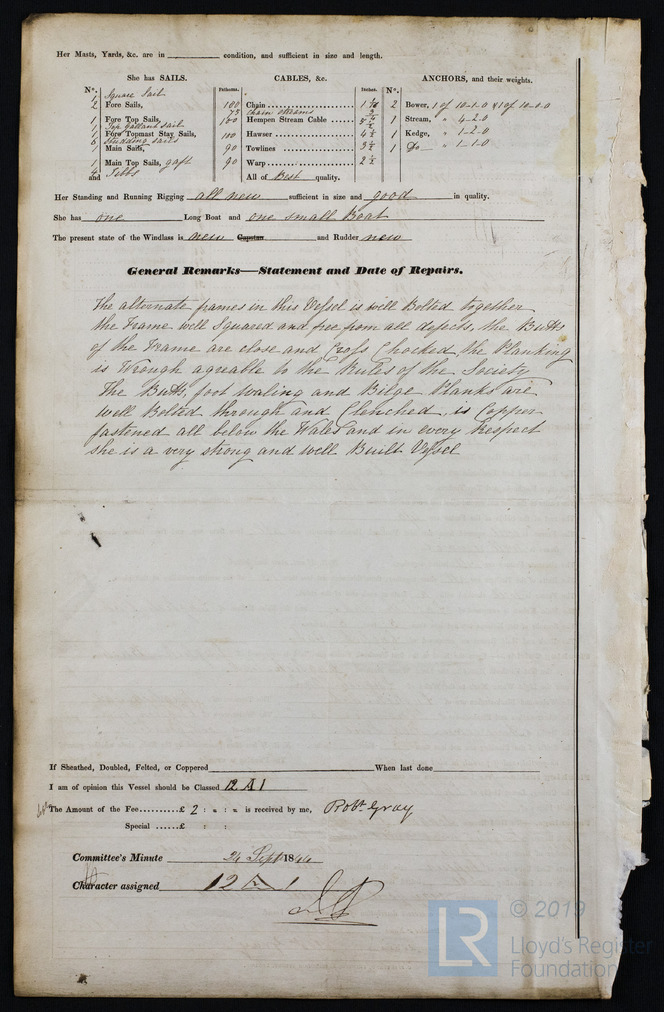 Her Masts, Yards, &c. are in condition, and sufficient in size and length.
She has SAILS. CABLES, &c. ANCHORS, and their weights.
N°. Fathoms. Inches. N°.
1 Square Sail
2 Fore Sails, 100 Chain 1 2 Bower, 1 of 10-1-0 & 1 of 10-0-0
75 Chain Streams
1 Fore Top Sails, Hempen Stream Cable 1 Stream, " 4-2-0
1 Top Gallant Sail
1 Fore Topmast Stay Sails, 100 Hawser 4 ½ 1 Kedge, " 1-2-0
6 Studding Sails
1 Main Sails, 90 Towlines 3 ½ 1 Do " 1-1-0
1 Main Top Sails, gaft 90 Warp 2 ½
4 Jibbs
and All of Best quality.
Her Standing and Running Rigging all new sufficient in size and good in quality.
She has one Long Boat and one small Boat
The present state of the Windlass is new Capstan and Rudder new
General Remarks—Statement and Date of Repairs.
The alternate frames in this Vessel is well Bolted together
the Frame well Squared and free from all defects, the Butts
of the Frame are close and Cross Chocked, the Planking
is Wrough agreable to the Rules of the Society
The Butts, foot waling and Bilge Planks are
well Bolted through and Clenched, is Copper
fastened all below the Wales and in every Respect
she is a very strong and well Built Vessel
If Sheathed, Doubled, Felted, or Coppered When last done
I am of opinion this Vessel should be Classed 12 A 1
The Amount of the Fee..........£ 2 : " : " is received by me, Robt Gray
Special ......£ : :
Committee's Minute 24 Sept 1844
Character assigned 12 A 1
LR © 2019
Lloyd's Register
Foundation